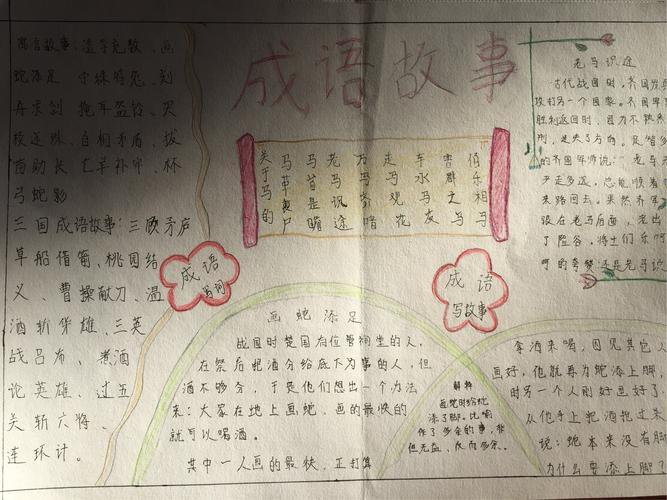 成语故事
寓言故事:滥竽充数、画
蛇添足 守株待兔、刻
舟求剑 掩耳盗铃、买
椟还珠、自相矛盾、拔
苗助长 亡羊补牢、杯
弓蛇影
三国成语故事:三顾矛庐
草船借箭、桃园结
义、曹操献刀、温
酒斩华雄、三英
战吕布、煮酒
论英雄、过五
关斩六将、
连环计。
关于马的
马革裹尸
马首是瞻
老马识途
万马齐喑
走马观花
车水马友
害群之马
伯乐相马
成语
写故事
老马识途
古代战国时,齐国发兵
攻打另一个国家。齐国军
胜利返回时,因为不熟悉
的齐国军师说:"老马
来路回去。果然齐军
跟在老马后面,走出
了险谷,将士们乐呵
呵的夸赞还是老马识
画蛇添足
战国时楚国有位管祠堂的人,
在祭后把酒分给底下办事的人,但
酒不够分,于是他们想出一个办法
来:大家在地上画蛇,画的最快的
就可以喝酒。
其中一人画的最快,正打算
拿酒来喝,因见其它人
画好,他就再为蛇添上脚,
时另一个人刚好画好了
从他手上把酒抱过来
说:蛇本来没有脚
为什么要添上脚?
解释
画蛇时给蛇
添了脚。比喻
作了多余的事,非
但无益,反而多余。